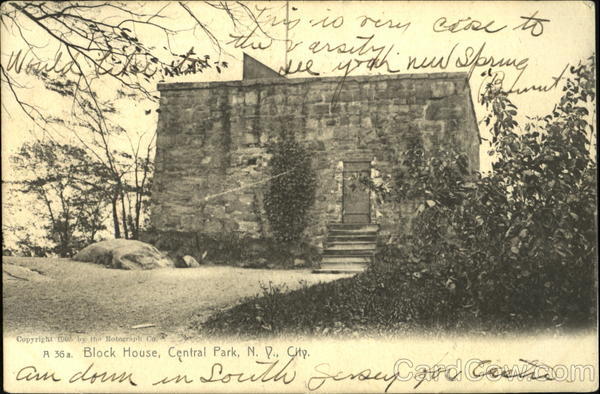 This is very close to
the varsity
Would like to see your new Spring
Bonnet
Copyright 1905 by the Rotograph Co.
A 35a. Block House, Central Park, N. Y., City.
am down in South Jersey for Easter
CardCow.com